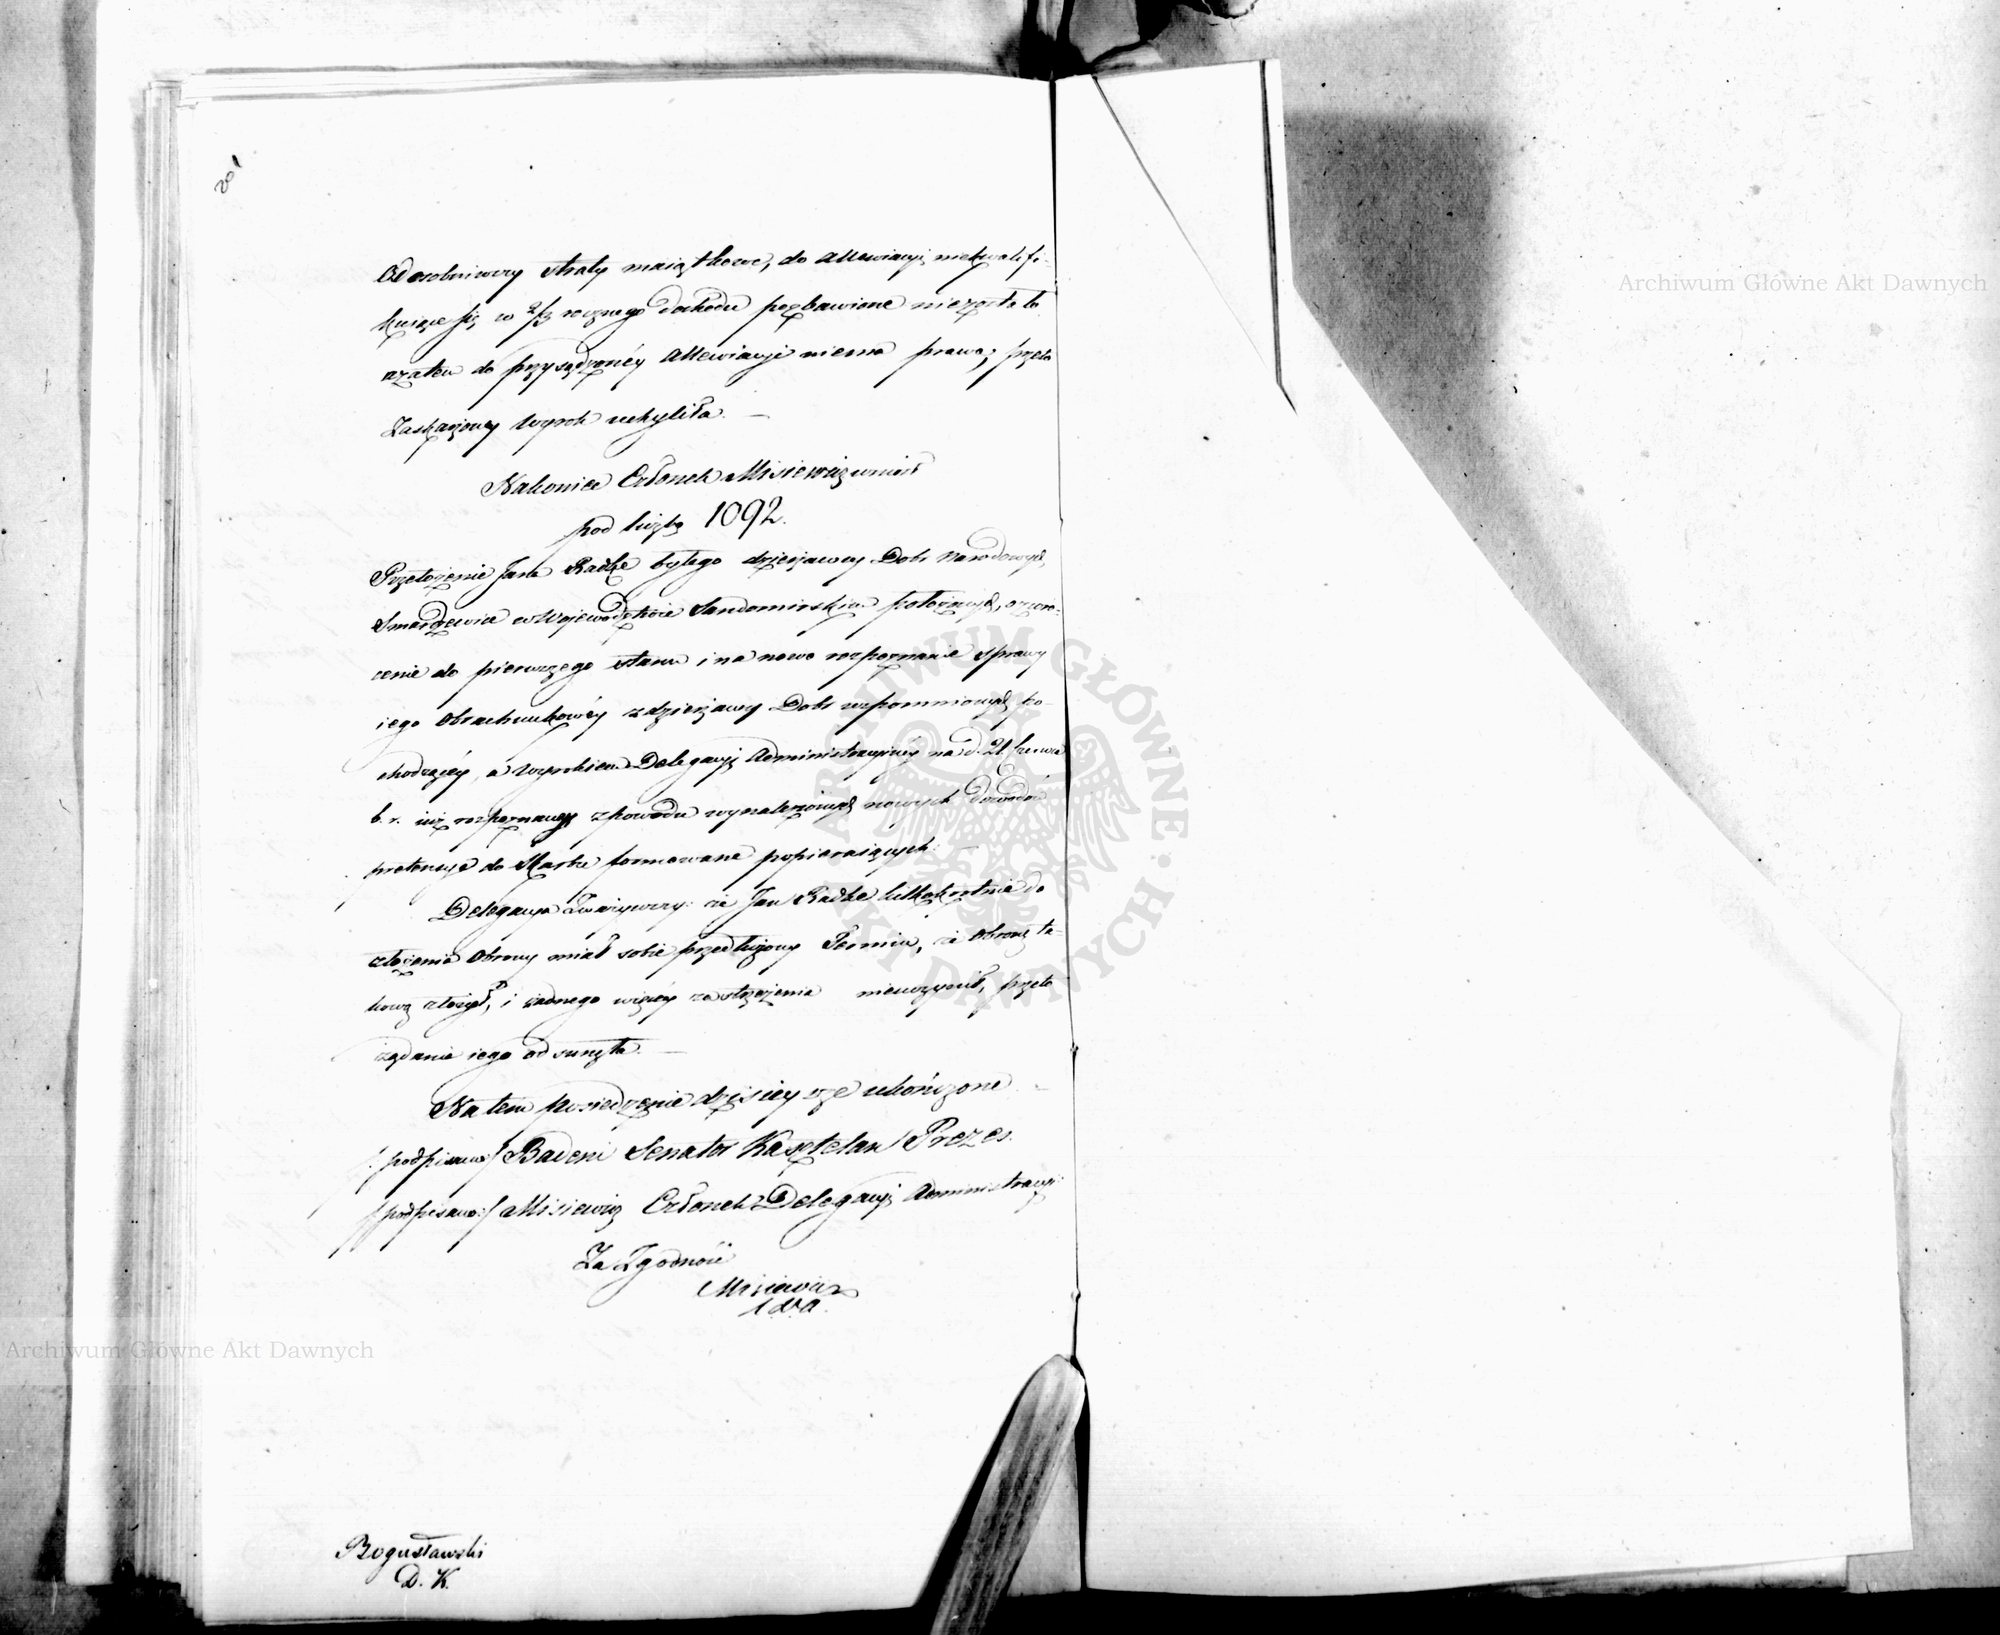 Odosobniwszy straty maiątkowe, do allewiacyi niekwalifi-
kuiące się w 2/3 rocznego dochodu pozbawione niezostało
azatem do przysądzonéy allewiacyi niema prawa; przeto
Zaskarżony Wyrok uchyliła. —
Nakoniec Członek Misiewicz wniósł
pod liczbą 1092.
Przełożenie Jana Radke byłego dzierżawcy Dobr Narodowych
Smardzewice w Województwie Sandomirskiem położonych, o zwró-
cenie do pierwszego stanu i na nowo rozpoznanie sprawy
iego Obrachunkowéy z dzierżawy Dobr wspomnionych po-
chodzącéy, a Wyrokiem Delegacyi Administracyinéy na d. 21. Czerwca
b. r. iuż rozpoznanéy z powodu wynalezionych nowych dowodów
pretensye do Skarbu formowane popieraiących. —
Delegacya Zważywszy: że Jan Radke kilkakrotnie do
złożenia Obrony miał sobie przedłużony Termin, że Obronę ta-
kową złożył, i żadnego więcéy zastrzeżenia nieuczynił, przeto
żądanie iego odsunęła. —
Na tem posiedzenie dzisieysze ukończone
/: podpisano:/ Badeni Senator Kasztelan Prezes.
/: podpisano:/ Misiewicz Członek Delegacyi Administracyi:
Za Zgodność
Misiewicz
Bogusławski
D. K.
Archiwum Główne Akt Dawnych
Archiwum Główne Akt Dawnych
ARCHIWUM GŁÓWNE AKT DAWNYCH